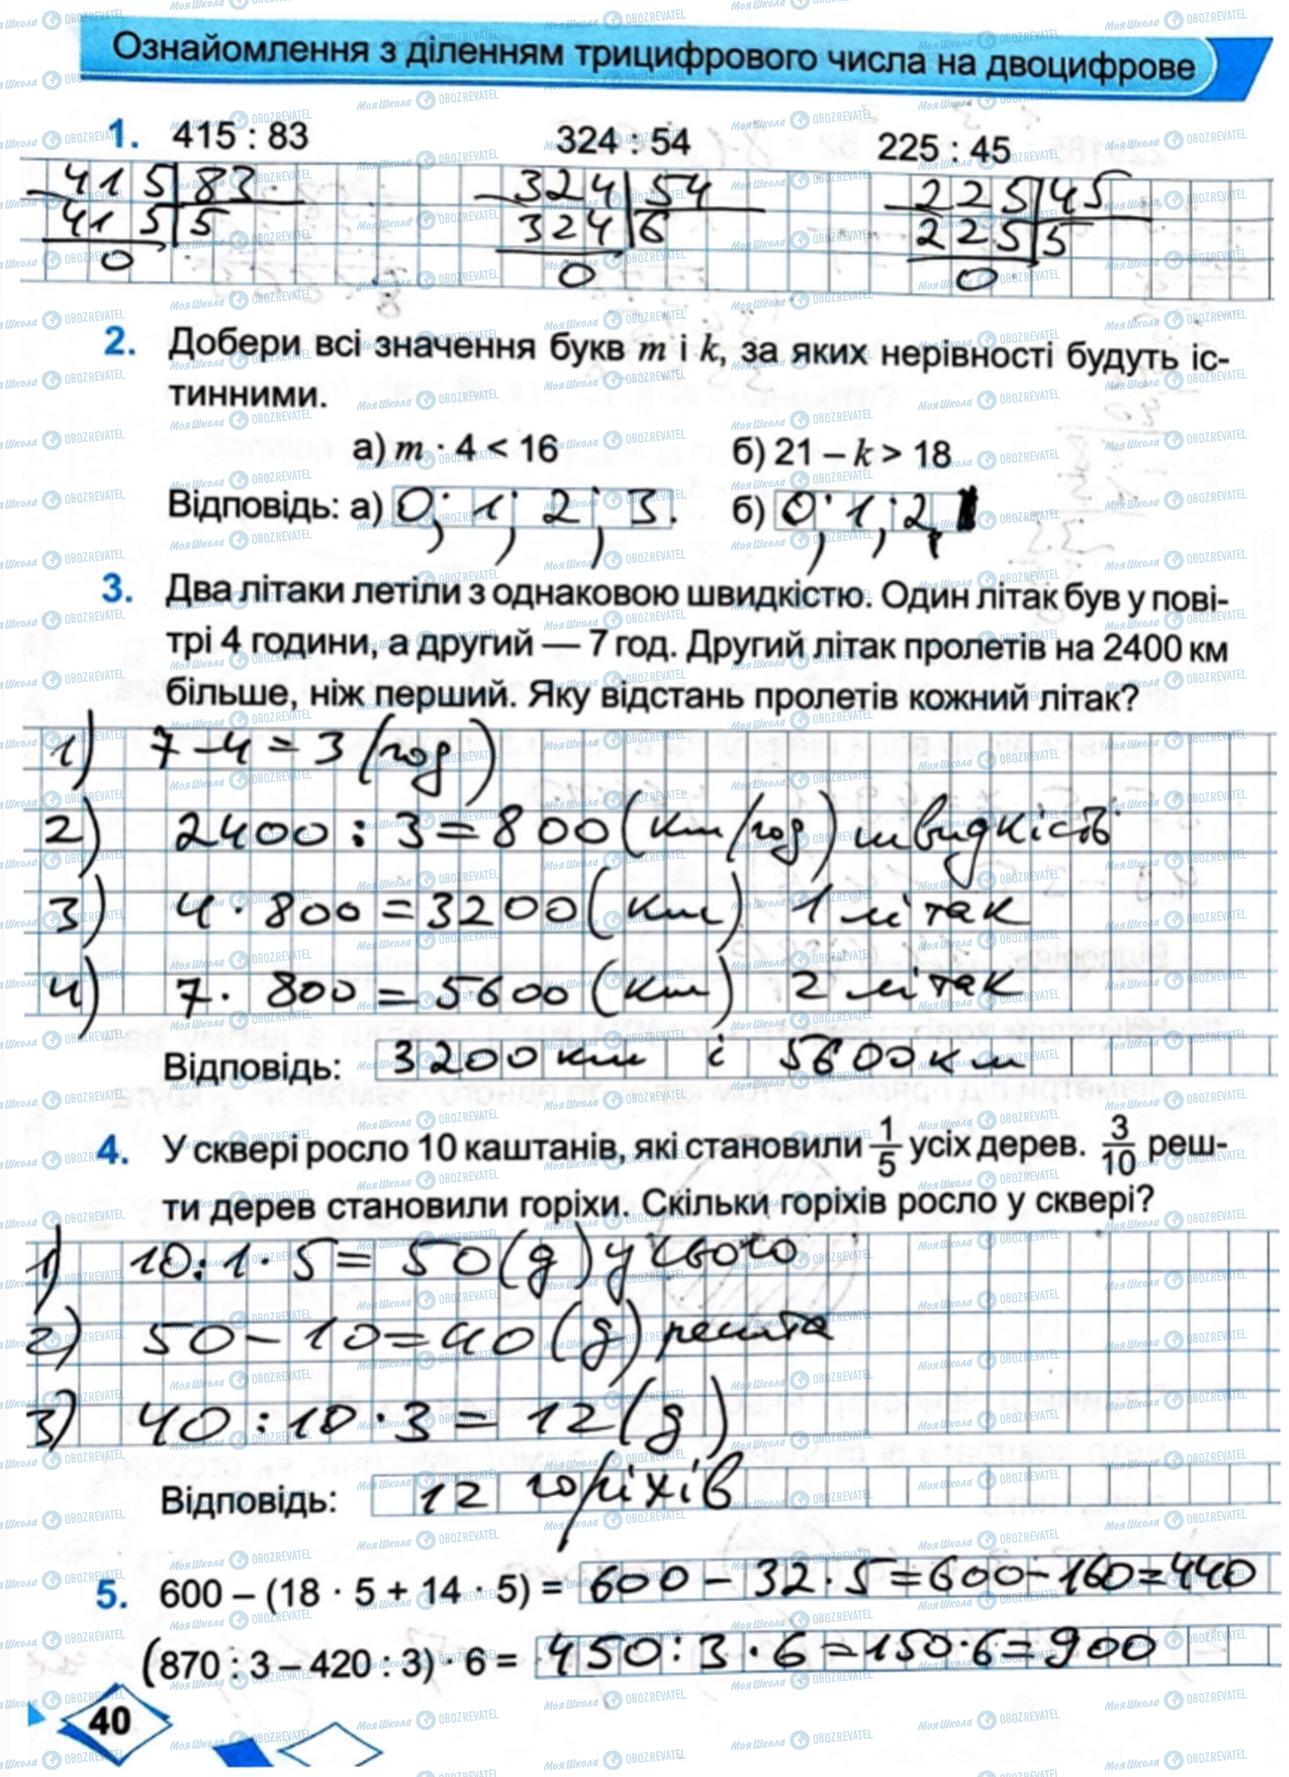 Ознайомлення з діленням трицифрового числа на двоцифрове
1. 415 : 83 324 : 54 225 : 45
415 83 324 54 225 45
415 5 324 6 225 5
0 0 0
2. Добери всі значення букв m і k, за яких нерівності будуть іс-
тинними.
а) m · 4 < 16 б) 21 – k > 18
Відповідь: а) 0; 1; 2; 3. б) 0; 1; 2
3. Два літаки летіли з однаковою швидкістю. Один літак був у пові-
трі 4 години, а другий — 7 год. Другий літак пролетів на 2400 км
більше, ніж перший. Яку відстань пролетів кожний літак?
1) 7 - 4 = 3 (год)
2) 2400 : 3 = 800 (км/год) швидкість
3) 4 · 800 = 3200 (км) 1 літак
4) 7 · 800 = 5600 (км) 2 літак
Відповідь: 3200 км і 5600 км
4. У сквері росло 10 каштанів, які становили 1/5 усіх дерев. 3/10 реш-
ти дерев становили горіхи. Скільки горіхів росло у сквері?
1) 10 : 1 · 5 = 50 (д) усього
2) 50 – 10 = 40 (д) решта
3) 40 : 10 · 3 = 12 (д)
Відповідь: 12 горіхів
5. 600 – (18 · 5 + 14 · 5) = 600 – 32 · 5 = 600 – 160 = 440
(870 : 3 – 420 : 3) · 6 = 450 : 3 · 6 = 150 · 6 = 900
40
Моя Школа OBOZREVATEL